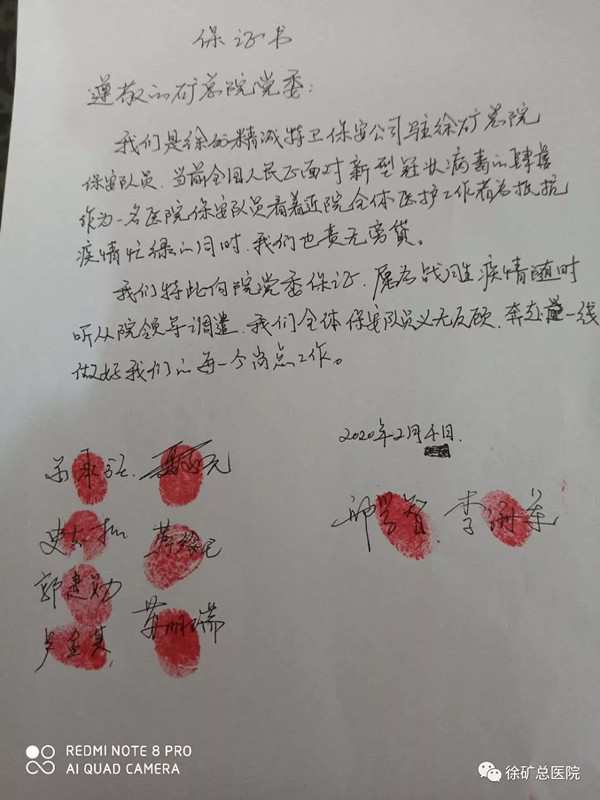 保证书
遵敬的矿总院党委：
我们是徐州精诚特卫保安公司驻徐矿总院
保安队员，当前全国人民正面对新型冠状病毒的肆虐
作为一名医院保安队员看着医院全体医护工作者为抵抗
疫情忙绿的同时，我们也责无旁贷。
我们特此向院党委保证，愿为战胜疫情随时
听从院领导调遣，我们全体保安队员义无反顾，奔赴一线
做好我们的每一个岗点工作。
2020年2月4日.
邢学智 李
郭建勋
苏明瑞
REDMI NOTE 8 PRO
AI QUAD CAMERA
徐矿总医院